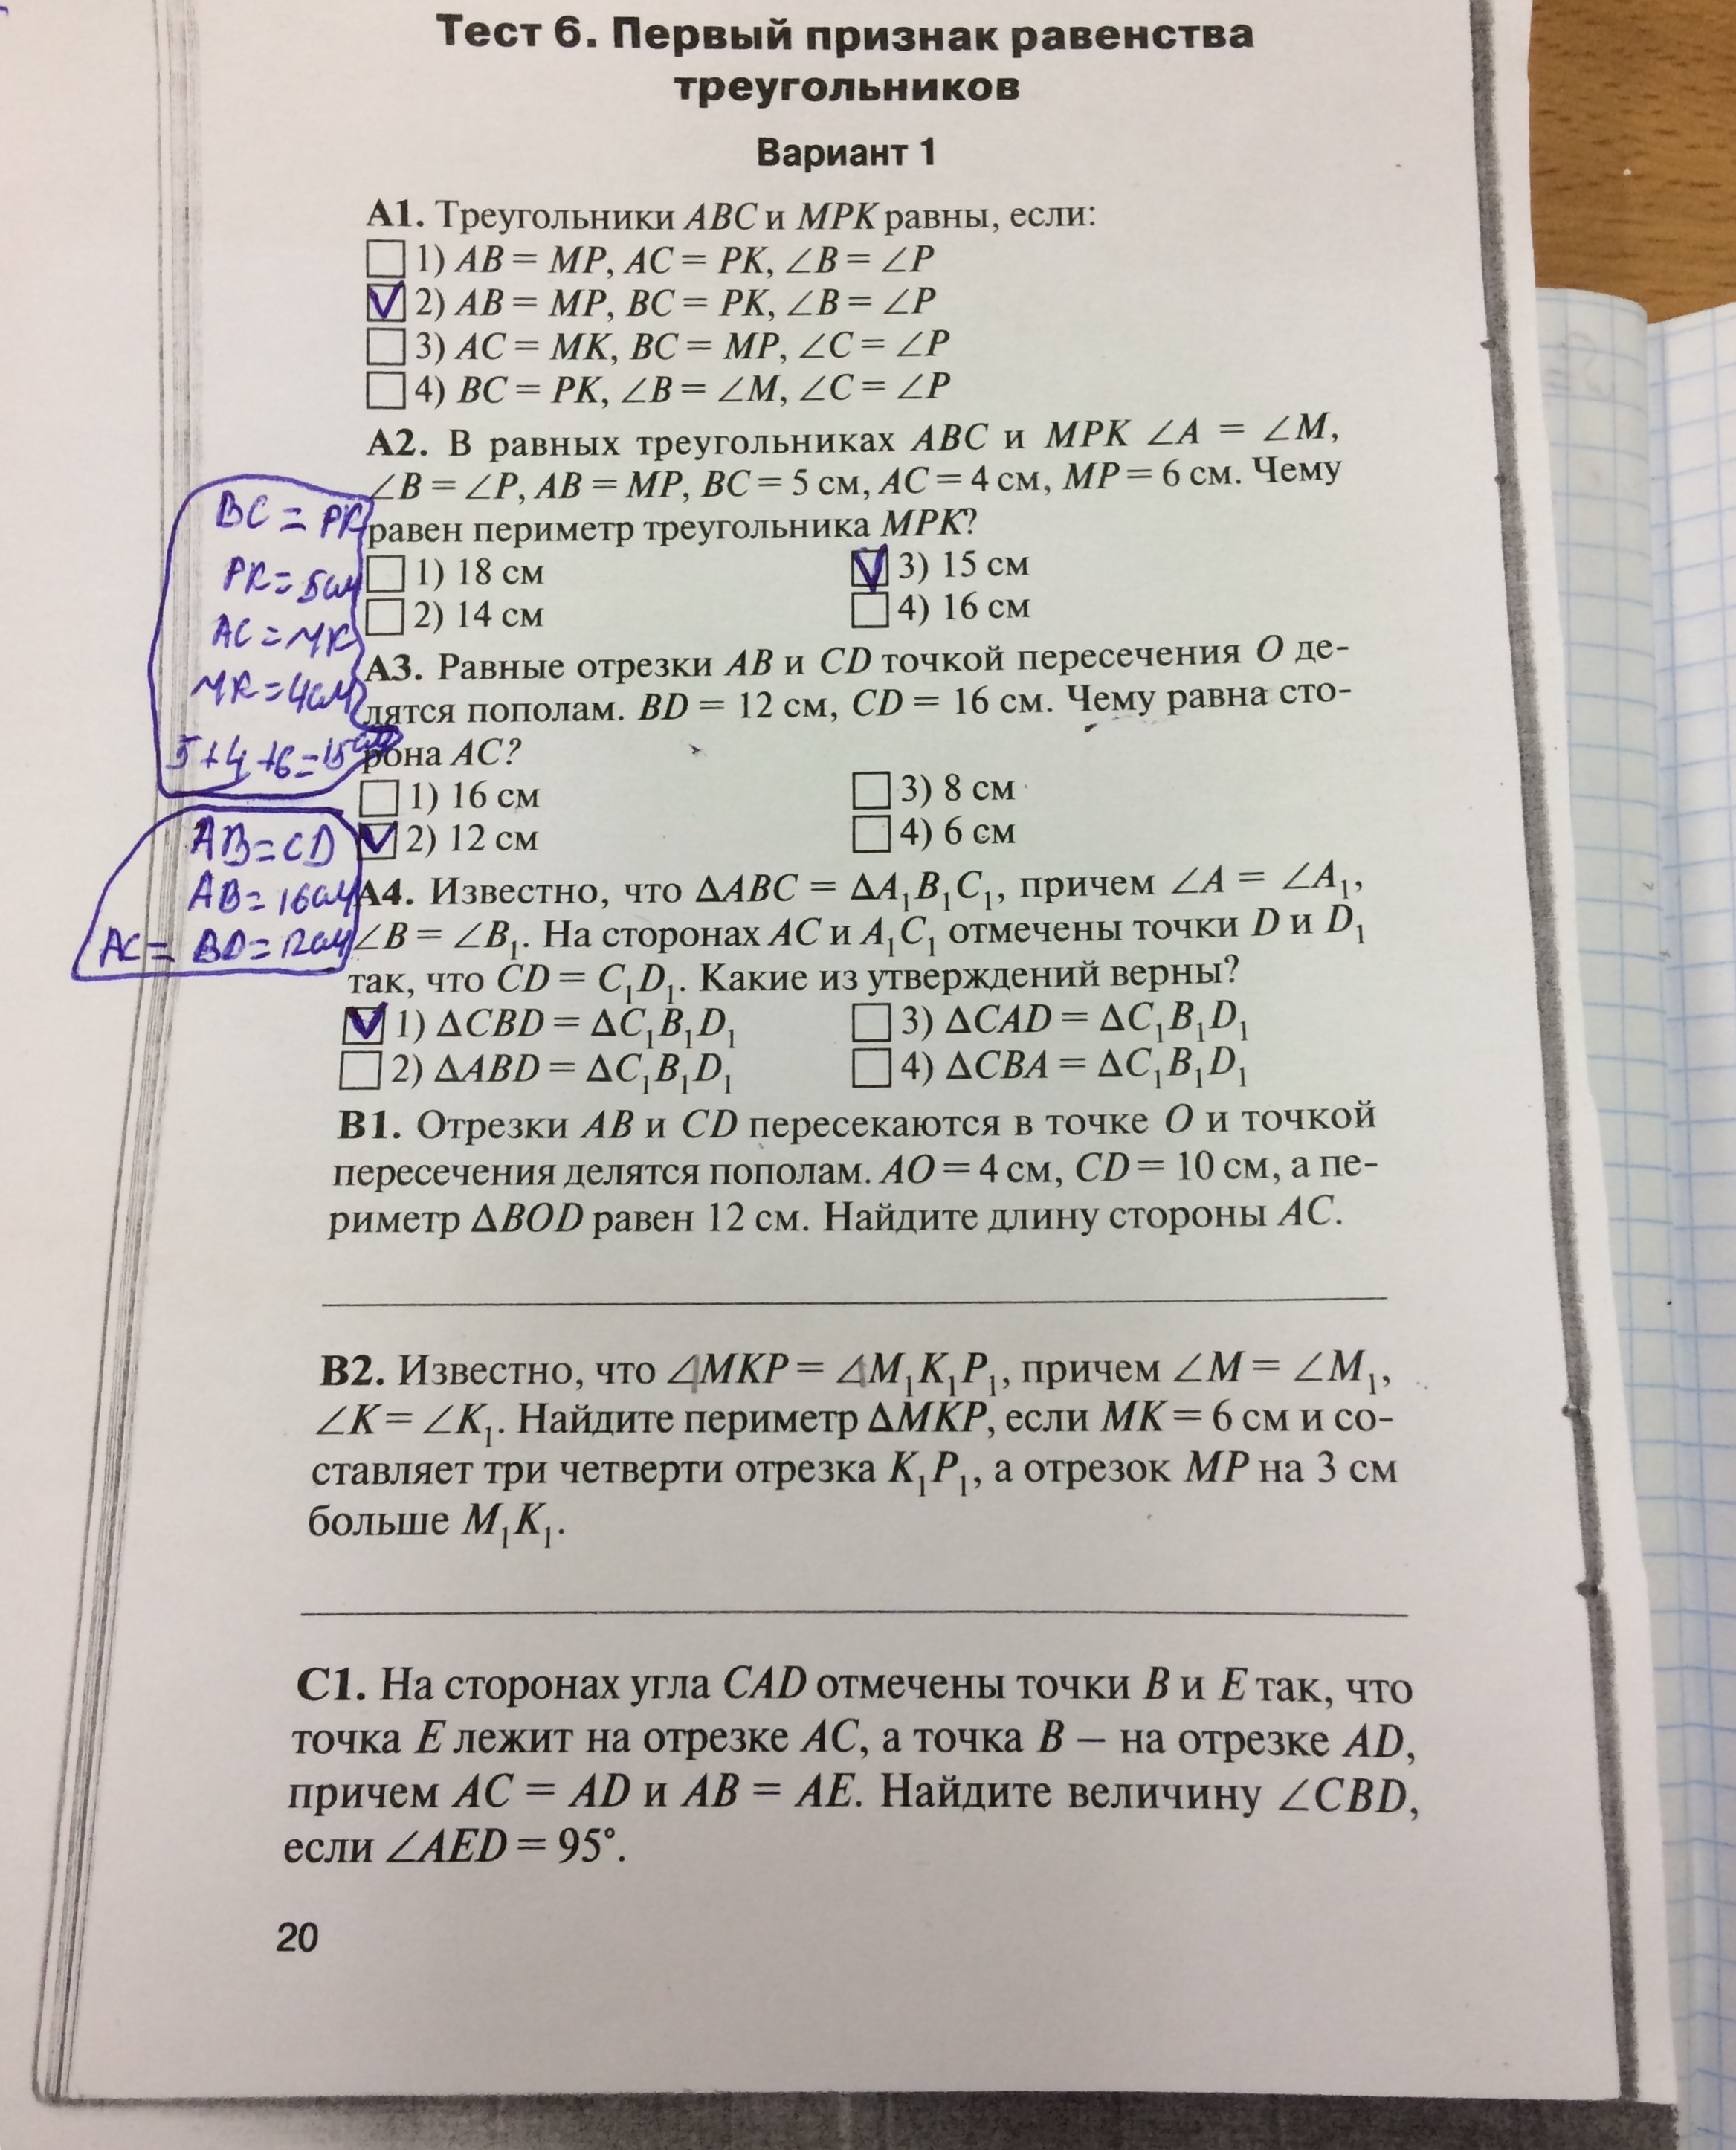 Тест 6. Первый признак равенства
треугольников
Вариант 1
А1. Треугольники ABC и MPK равны, если:
V 1) AB = MP, AC = PK, ∠B = ∠P
V 2) AB = MP, BC = PK, ∠B = ∠P
3) AC = MK, BC = MP, ∠C = ∠P
4) BC = PK, ∠B = ∠M, ∠C = ∠P
А2. В равных треугольниках ABC и MPK ∠A = ∠M,
∠B = ∠P, AB = MP, BC = 5 см, AC = 4 см, MP = 6 см. Чему
равен периметр треугольника MPK?
1) 18 см
V 3) 15 см
2) 14 см
4) 16 см
BC = PK
PK = 5 см
AC = MK
MK = 4 см
5 + 4 + 6 = 15 см
А3. Равные отрезки AB и CD точкой пересечения O де-
лятся пополам. BD = 12 см, CD = 16 см. Чему равна сто-
рона AC?
1) 16 см
3) 8 см
V 2) 12 см
4) 6 см
AB = CD
AB = 16 см
AC = BD = 12 см
А4. Известно, что ΔABC = ΔA₁B₁C₁, причем ∠A = ∠A₁,
∠B = ∠B₁. На сторонах AC и A₁C₁ отмечены точки D и D₁
так, что CD = C₁D₁. Какие из утверждений верны?
V 1) ΔCBD = ΔC₁B₁D₁
3) ΔCAD = ΔC₁B₁D₁
2) ΔABD = ΔC₁B₁D₁
4) ΔCBA = ΔC₁B₁D₁
В1. Отрезки AB и CD пересекаются в точке O и точкой
пересечения делятся пополам. AO = 4 см, CD = 10 см, а пе-
риметр ΔBOD равен 12 см. Найдите длину стороны AC.
В2. Известно, что ∠MKP = ∠M₁K₁P₁, причем ∠M = ∠M₁,
∠K = ∠K₁. Найдите периметр ΔMKP, если MK = 6 см и со-
ставляет три четверти отрезка K₁P₁, а отрезок MP на 3 см
больше M₁K₁.
С1. На сторонах угла CAD отмечены точки B и E так, что
точка E лежит на отрезке AC, а точка B – на отрезке AD,
причем AC = AD и AB = AE. Найдите величину ∠CBD,
если ∠AED = 95°.
20